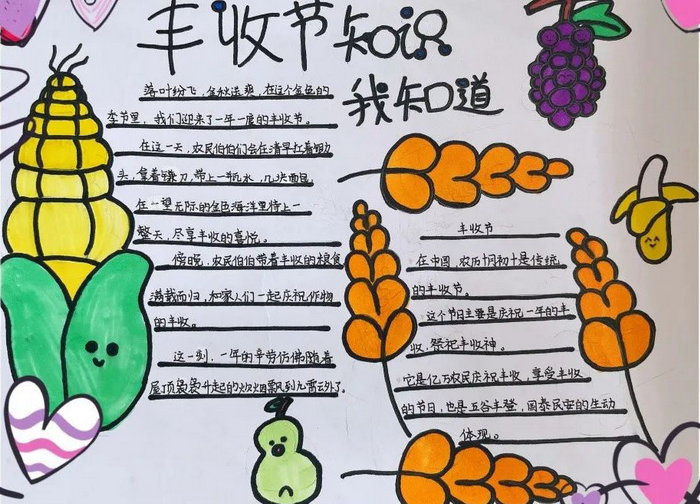 丰收节知识
我知道
落叶纷飞，金秋送爽，在这个金色的
季节里，我们迎来了一年一度的丰收节。
在这一天，农民伯伯们会在清早扛着锄
头，拿着镰刀，带上一瓶水，几块面包
在一望无际的金色海洋里待上一
整天，尽享丰收的喜悦。
傍晚，农民伯伯带着丰收的粮食
满载而归，和家人们一起庆祝作物
的丰收。
这一刻，一年的辛劳仿佛随着
屋顶袅袅升起的炊烟飘到九霄云外了。
丰收节
在中国，农历十月初十是传统
的丰收节。
这个节日主要是庆祝一年的丰
收，祭祀丰收神。
它是亿万农民庆祝丰收，享受丰收
的节日，也是五谷丰登，国泰民安的生动
体现。